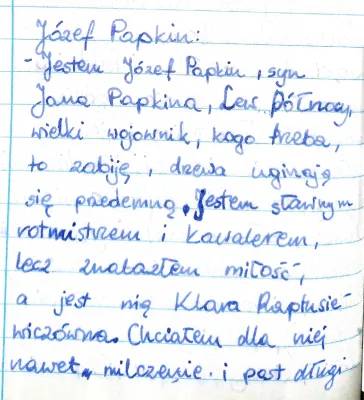 Józef Papkin:
- Jestem Józef Papkin, syn
Jana Papkina, Lew Północy,
wielki wojownik, kogo trzeba,
to zabiję, drzewa uginają
się przedemną. Jestem sławnym
rotmistrzem i kawalerem,
lecz znalazłem miłość,
a jest nią Klara Raptusie-
wiczówna. Chciałem dla niej
nawet milczenie i post długi